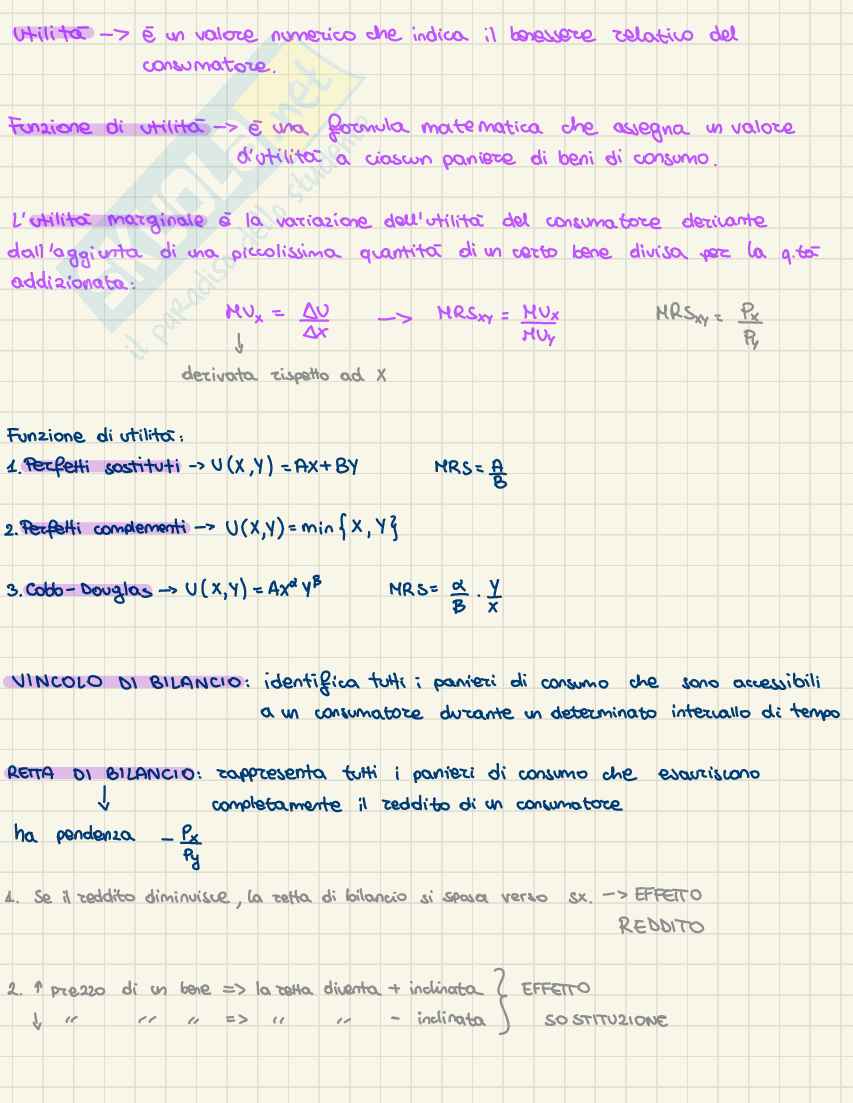 Utilità -> è un valore numerico che indica il benessere relativo del
consumatore.
Funzione di utilità -> è una formula matematica che assegna un valore
d'utilità a ciascun paniere di beni di consumo.
L'utilità marginale è la variazione dell'utilità del consumatore derivante
dall'aggiunta di una piccolissima quantità di un certo bene divisa per la q.tà
addizionata:
MUx = ΔU/Δx -> MRSxy = MUx/MUy MRSxy = Px/Py
↓
derivata rispetto ad X
Funzione di utilità:
1. Perfetti sostituti -> U(X,Y) = AX+BY MRS = A/B
2. Perfetti complementi -> U(X,Y) = min{X,Y}
3. Cobb-Douglas -> U(X,Y) = AX^α Y^β MRS = α/β · Y/X
VINCOLO DI BILANCIO: identifica tutti i panieri di consumo che sono accessibili
a un consumatore durante un determinato intervallo di tempo
RETTA DI BILANCIO: rappresenta tutti i panieri di consumo che esauriscono
↓ completamente il reddito di un consumatore
ha pendenza - Px/Py
1. Se il reddito diminuisce, la retta di bilancio si sposa verso sx. -> EFFETTO
REDDITO
2. ↑ prezzo di un bene => la retta diventa + inclinata } EFFETTO
↓ " " " => " " - inclinata } SOSTITUZIONE
SKUOLA.net
il paradiso dello studente